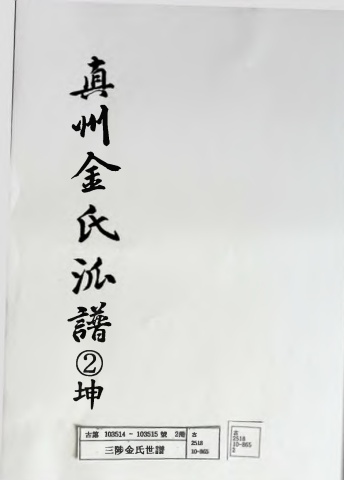 真州金氏派譜②坤
古第 103514 - 103515 號 2冊
三陟金氏世譜
古
2518
10-865
古
2518
10-865
2